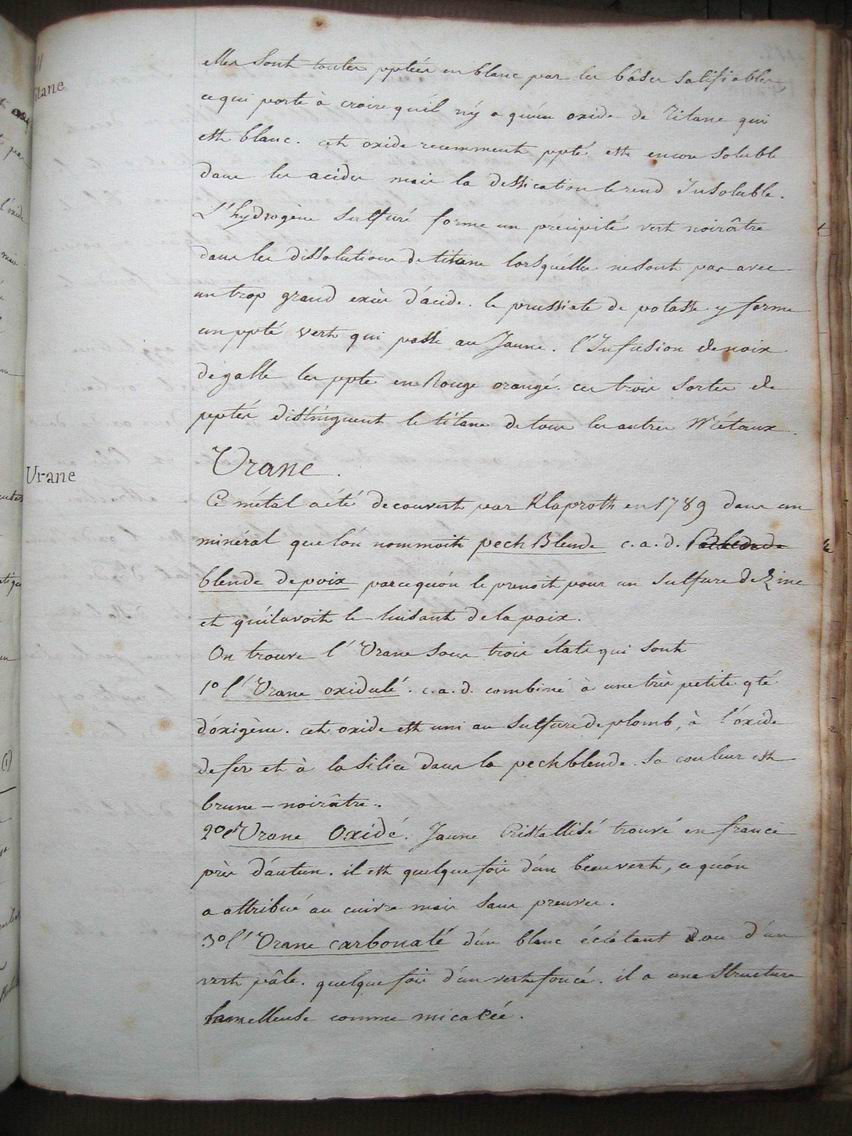 Titane
elles sont toutes pptées en blanc par les bâses salifiables
ce qui porte à croire qu'il n'y a qu'un oxide de Titane qui
est blanc. cet oxide recemment ppté est encore soluble
dans les acides mais la dessication le rend Insoluble.
L'hydrogène sulfuré forme un précipité vert noirâtre
dans les dissolutions de titane lorsqu'elles ne sont pas avec
un trop grand excès d'acide. le prussiate de potasse y forme
un ppté vert qui passe au Jaune. l'Infusion de noix
de galle les ppte en Rouge orangé. ces trois sortes de
pptés distinguent le titane de tous les autres Métaux.
Urane
Urane.
Ce métal a été decouvert par Klaproth en 1789 dans un
minéral que l'on nommoit pech Blende c. a. d.
blende de poix parce qu'on le prenoit pour un sulfure de Zinc
et qu'il avoit le luisant de la poix.
On trouve l'Urane sous trois états qui sont
1º l'Urane oxidulé. c. a. d. combiné à une très petite qté
d'oxigène. cet oxide est uni au sulfure de plomb, à l'oxide
de fer et à la silice dans la pechblende. sa couleur est
brune - noirâtre.
2º l'Urane Oxidé. Jaune Cristallisé trouvé en france
près d'autun. il est quelque fois d'un beau vert, ce qu'on
a attribué au cuivre mais sans preuves.
3º l'Urane carbonaté d'un blanc éclatant ou d'un
vert pâle. quelque fois d'un vert foncé. il a une structure
lamelleuse comme micacée.